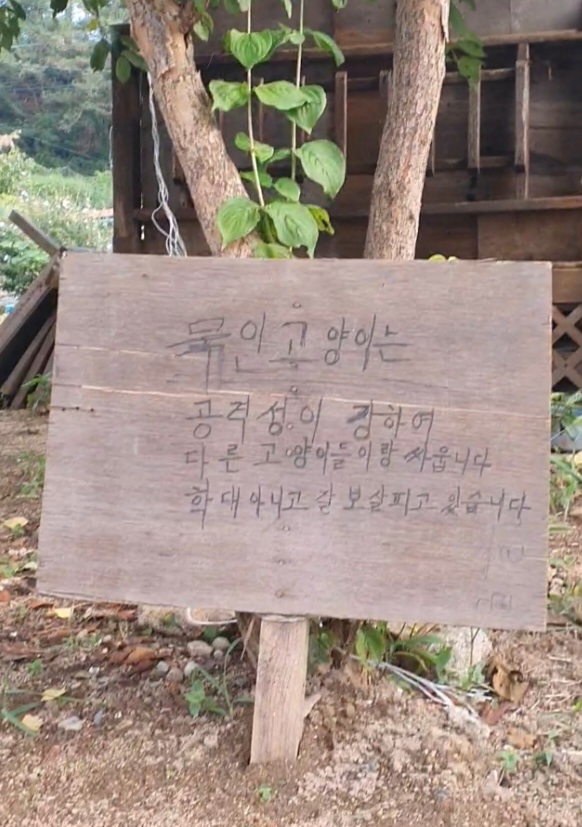 묶인 고양이는
공격성이 강하여
다른 고양이들이랑 싸웁니다
학대아니고 잘 보살피고 있습니다